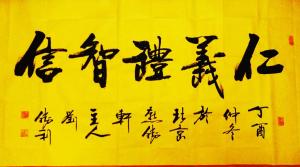 仁義禮智信
丁酉
仲冬
於
北京
軒
主人
劉